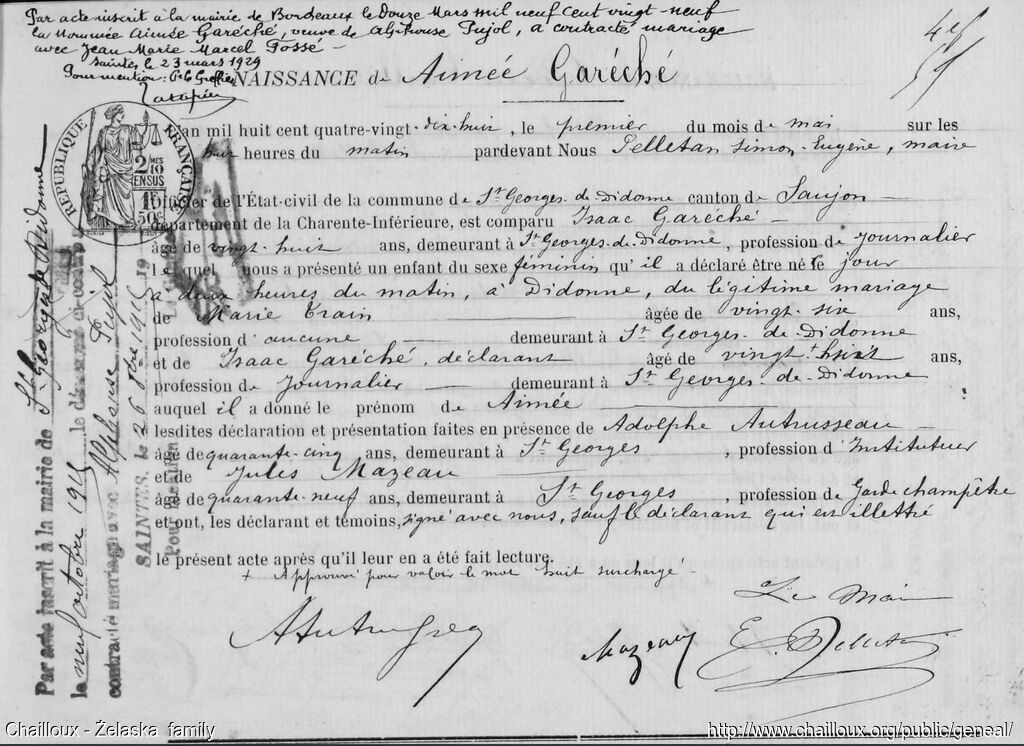 Par acte inscrit à la mairie de Bordeaux le Douze Mars mil neuf Cent vingt neuf
la Nommée Aimée Garéché, veuve de Alphonse Pujol, a contracté mariage
avec Jean Marie Marcel Possé -
Saintes, le 23 mars 1929
Pour mention: P. le Greffier
NAISSANCE de Aimée Garéché
L'an mil huit cent quatre-vingt-dix-huit, le premier du mois de mai sur les
huit heures du matin pardevant Nous Pelletan Simon-Eugène, maire
Officier de l'État-civil de la commune de St Georges-de-Didonne canton de Saujon -
département de la Charente-Inférieure, est comparu Isaac Garéché -
âgé de vingt-huit ans, demeurant à St Georges-de-Didonne, profession de Journalier
lequel nous a présenté un enfant du sexe féminin qu'il a déclaré être né le jour
à deux heures du matin, à Didonne, du légitime mariage
de Marie Train — âgée de vingt-six ans,
profession d'aucune — demeurant à St Georges-de-Didonne
et de Isaac Garéché, déclarant âgé de vingt + huit ans,
profession de Journalier — demeurant à St Georges-de-Didonne
auquel il a donné le prénom de Aimée —
lesdites déclaration et présentation faites en présence de Adolphe Autrusseau -
âgé de quarante-cinq ans, demeurant à St Georges, profession d'Instituteur
et de Jules Mazeau —
âgé de quarante-neuf ans, demeurant à St Georges, profession de Garde champêtre
et ont, les déclarant et témoins, signé avec nous, sauf le déclarant qui est illettré
le présent acte après qu'il leur en a été fait lecture.
+ Approuvé pour valoir le mot huit surchargé -
Le Maire
Mazeau
E. Pelletan
RÉPUBLIQUE FRANÇAISE
2/10
EN SUS
50c
Par acte inscrit à la mairie de St Georges de Didonne
le neuf octobre 1915, le
contracté mariage avec Alphonse Pujol
SAINTES, le 26 8bre 1915
Chailloux - Želaska family
http://www.chailloux.org/public/geneal/